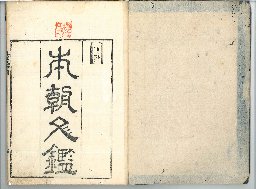 本朝文鑑